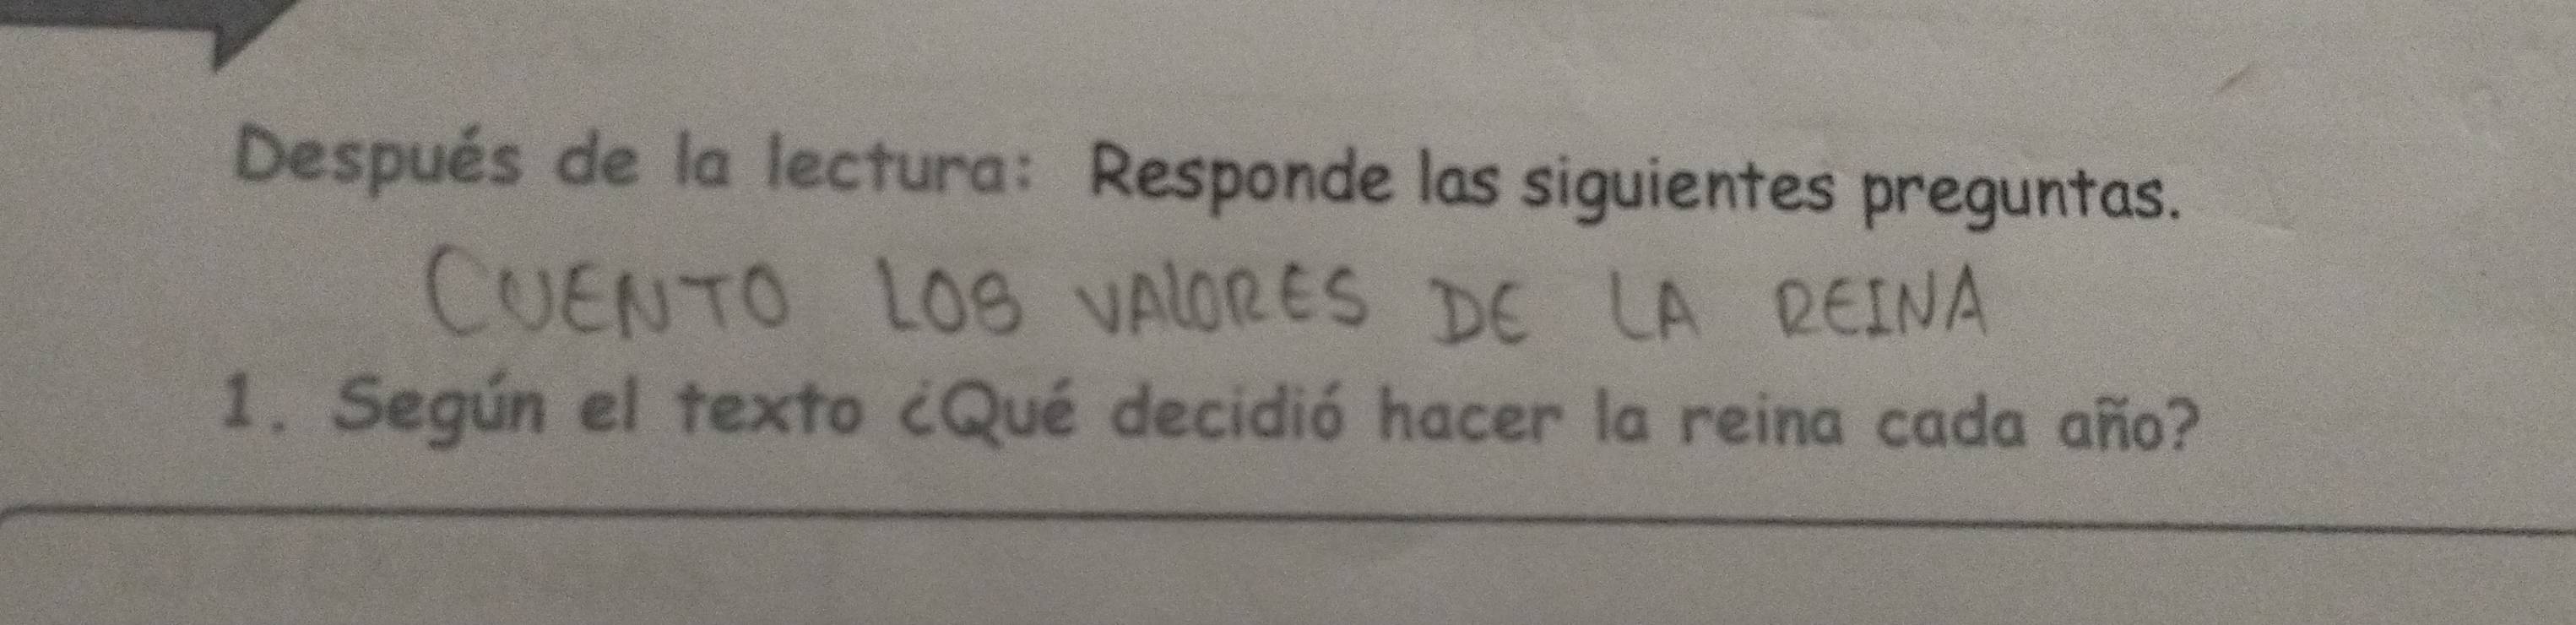 Después de la lectura: Responde las siguientes preguntas.
CUENTO LOS VALORES DE LA REINA
1. Según el texto ¿Qué decidió hacer la reina cada año?